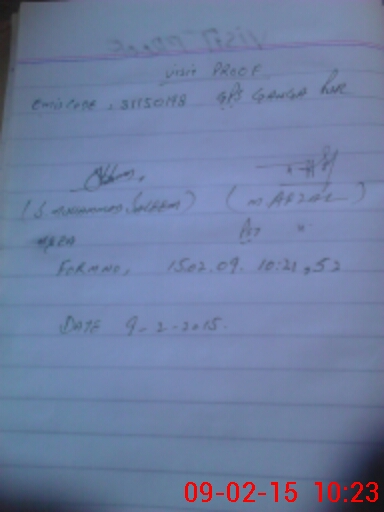 Visit PROOF
Emis code: 31150198 GPS GANGA PUR
(S. MUHAMMAD SALEEM) (M. AFZAL)
MEA PST
FORM NO, 1502.09. 10:21,52
DATE 9-2-2015.
09-02-15 10:23